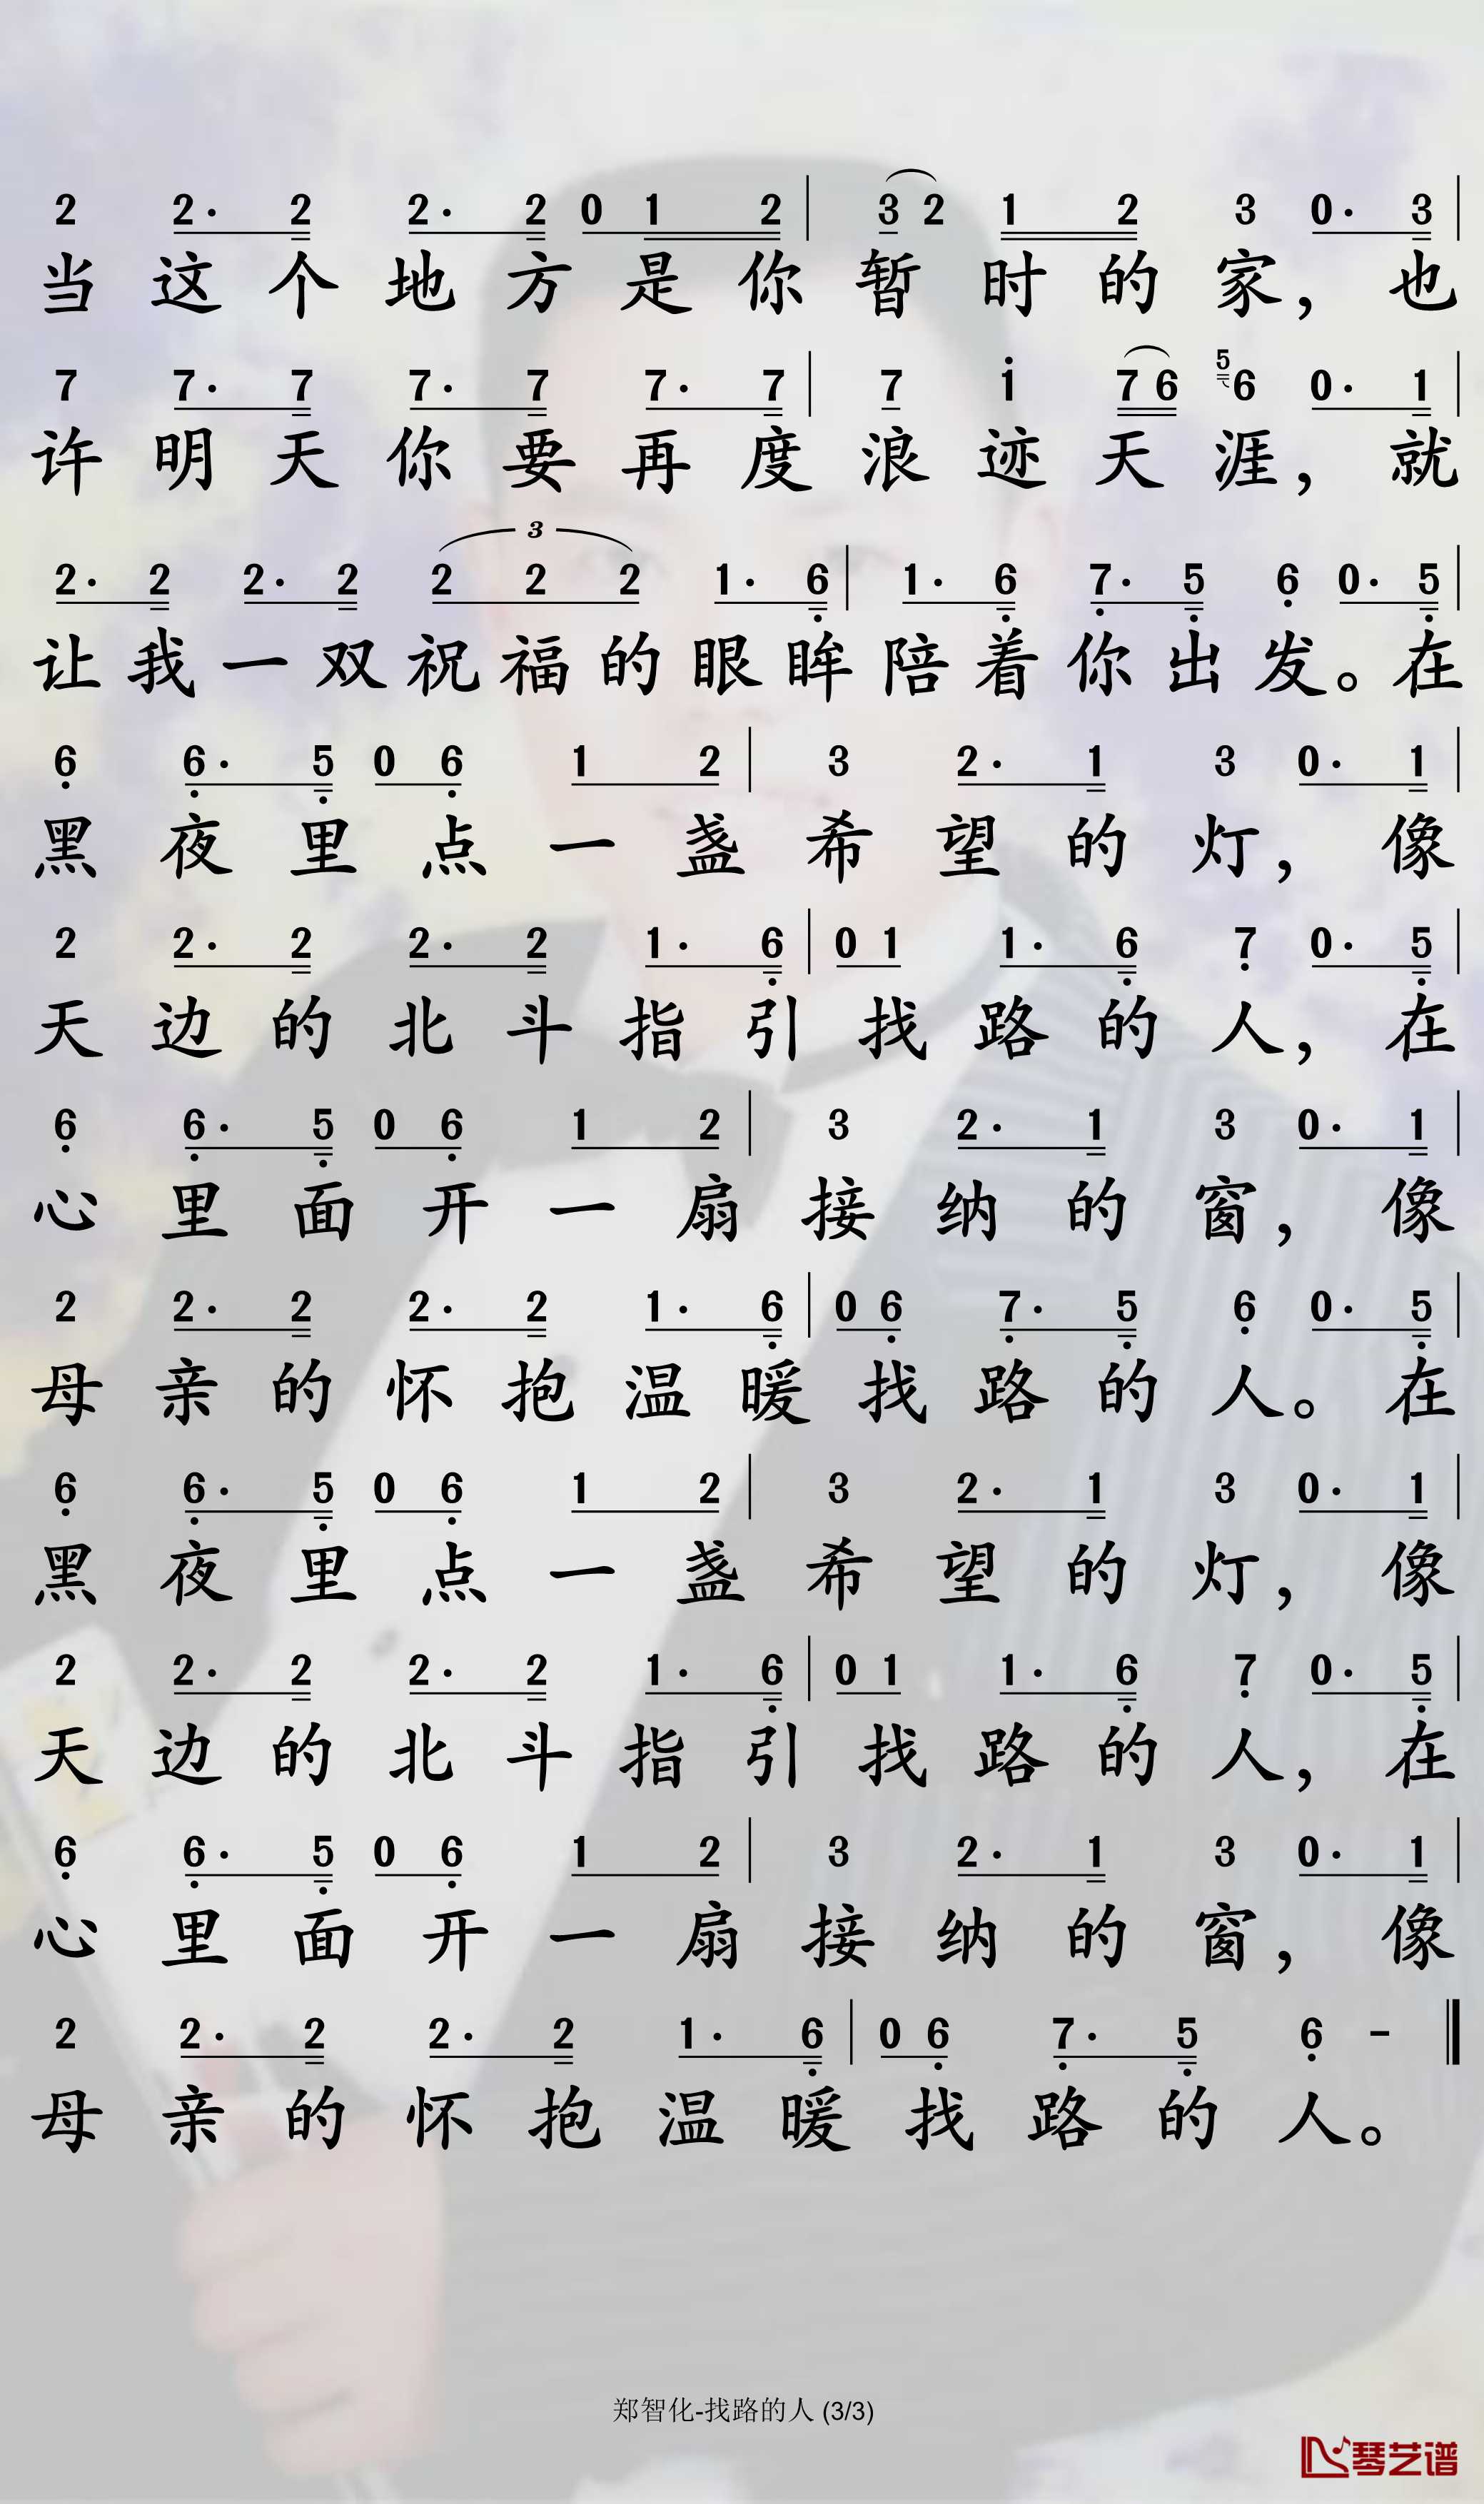 2 2· 2 2· 2 0 1 2 | 3 2 1 2 3 0· 3 |
当这个地方是你暂时的家，也
7 7· 7 7· 7 7· 7 | 7 1 7 6 5 6 0· 1 |
许明天你要再度浪迹天涯，就
3
2· 2 2· 2 2 2 2 1· 6 | 1· 6 7· 5 6 0· 5 |
让我一双祝福的眼眸陪着你出发。在
6 6· 5 0 6 1 2 | 3 2· 1 3 0· 1 |
黑夜里点一盏希望的灯，像
2 2· 2 2· 2 1· 6 | 0 1 1· 6 7 0· 5 |
天边的北斗指引找路的人，在
6 6· 5 0 6 1 2 | 3 2· 1 3 0· 1 |
心里面开一扇接纳的窗，像
2 2· 2 2· 2 1· 6 | 0 6 7· 5 6 0· 5 |
母亲的怀抱温暖找路的人。在
6 6· 5 0 6 1 2 | 3 2· 1 3 0· 1 |
黑夜里点一盏希望的灯，像
2 2· 2 2· 2 1· 6 | 0 1 1· 6 7 0· 5 |
天边的北斗指引找路的人，在
6 6· 5 0 6 1 2 | 3 2· 1 3 0· 1 |
心里面开一扇接纳的窗，像
2 2· 2 2· 2 1· 6 | 0 6 7· 5 6 - ‖
母亲的怀抱温暖找路的人。
郑智化-找路的人 (3/3)
琴艺谱